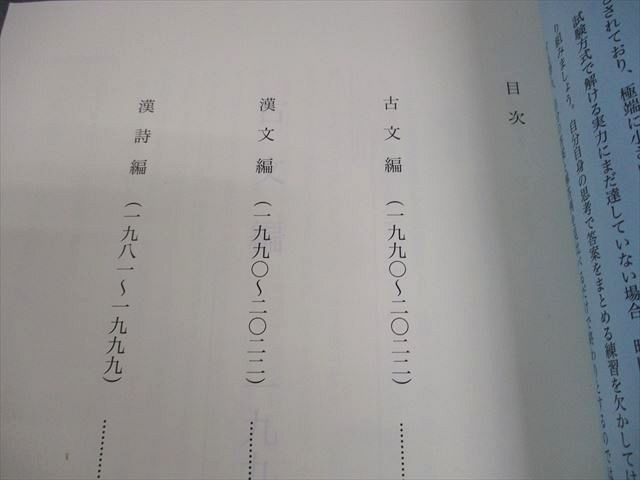 されており、極端に小
試験方式で解ける実力にまだ達していない場合
り組みましょう。自分自身の思考で答案をまとめる練習を欠かしては
目次
古文編 (一九九〇～二〇二二) ………
漢文編 (一九九〇～二〇二二) ………
漢詩編 (一九八一～一九九九) ………